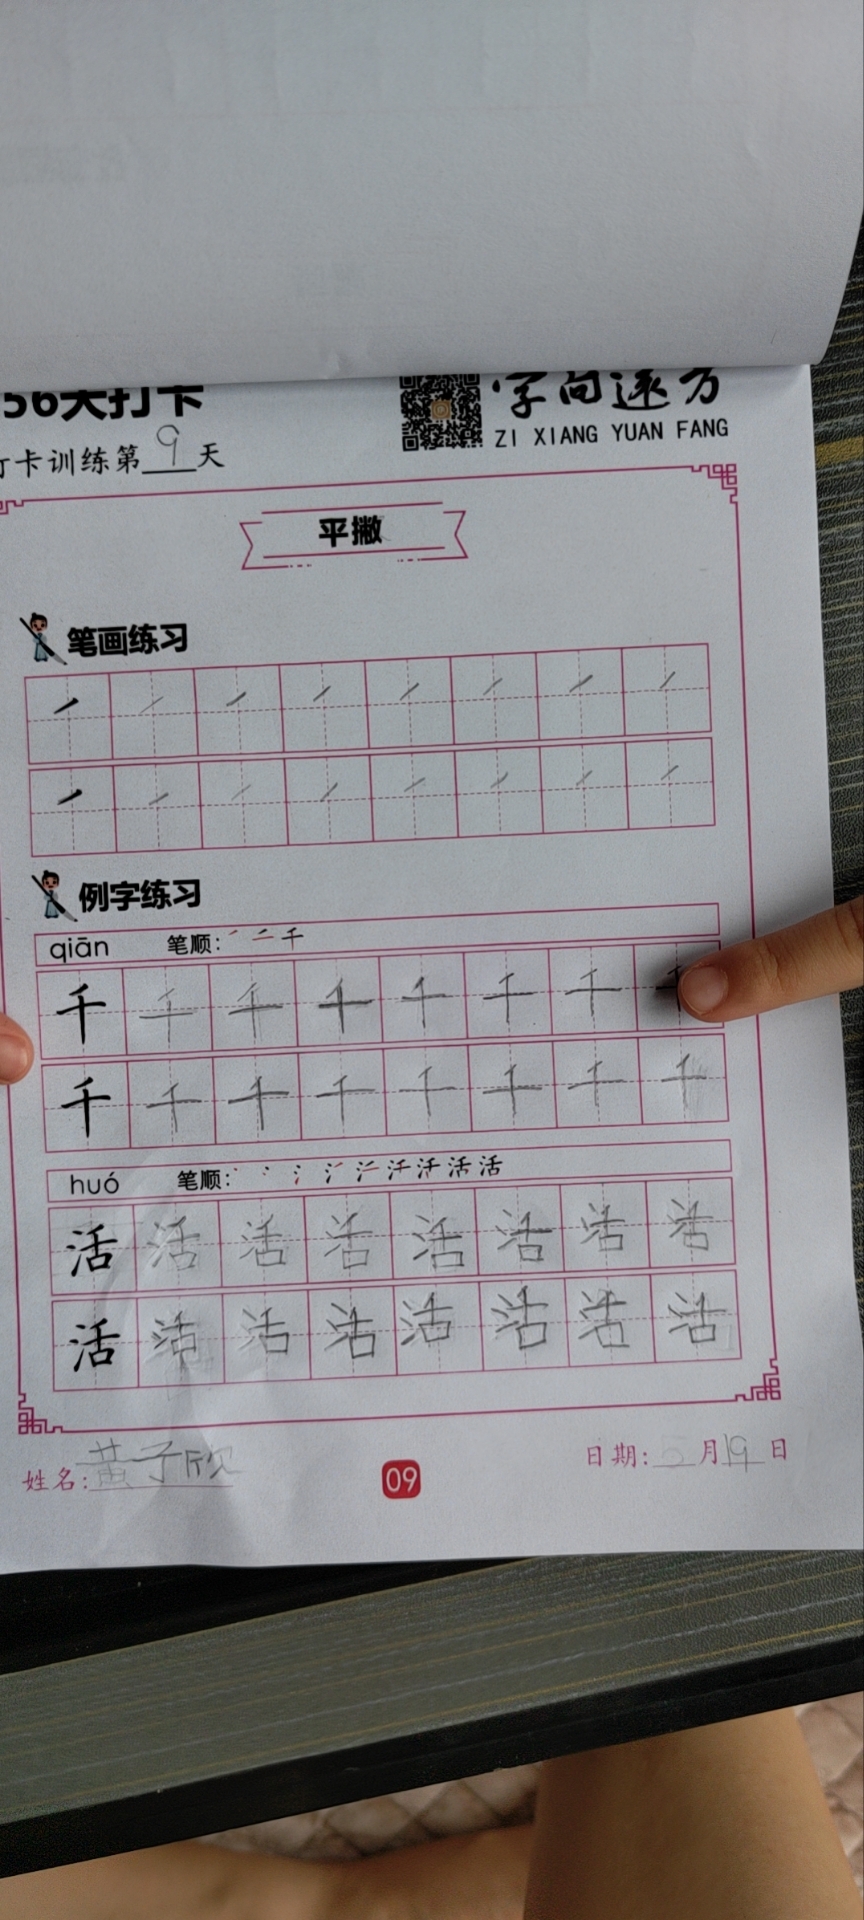 56天打卡
字向远方
ZI XIANG YUAN FANG
打卡训练第9天
平撇
笔画练习
例字练习
qiān 笔顺: 千
千 千 千 千 千 千 千
千 千 千 千 千 千 千 千
huó 笔顺: 活 活
活 活 活 活 活 活 活 活
活 活 活 活 活 活 活 活
姓名: 黄子欣
09
日期: 5月19日